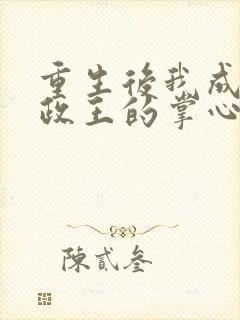 重生後我成
政王的掌心
陳貳叁